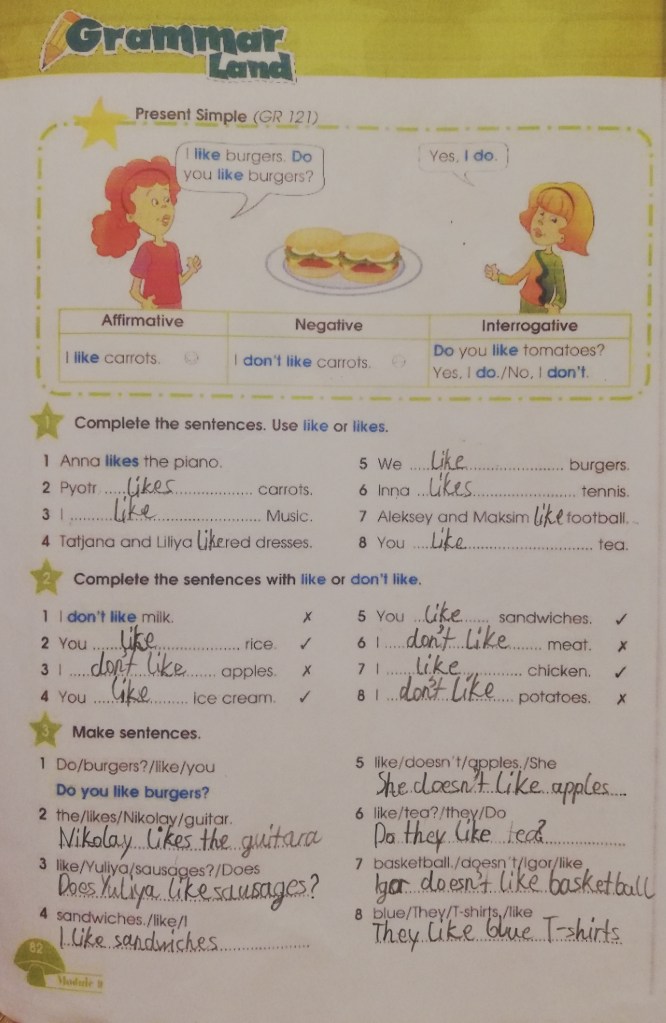 Grammar
Land
Present Simple (GR 121)
I like burgers. Do
you like burgers?
Yes, I do.
Affirmative Negative Interrogative
I like carrots. I don't like carrots. Do you like tomatoes?
Yes, I do./No, I don't.
1 Complete the sentences. Use like or likes.
1 Anna likes the piano.
2 Pyotr likes carrots.
3 I like Music.
4 Tatjana and Liliya like red dresses.
5 We like burgers.
6 Inna likes tennis.
7 Aleksey and Maksim like football.
8 You like tea.
2 Complete the sentences with like or don't like.
1 I don't like milk. ✗
2 You like rice. ✓
3 I don't like apples. ✗
4 You like ice cream. ✓
5 You like sandwiches. ✓
6 I don't like meat. ✗
7 I like chicken. ✓
8 I don't like potatoes. ✗
3 Make sentences.
1 Do/burgers?/like/you
Do you like burgers?
2 the/likes/Nikolay/guitar.
Nikolay likes the guitara
3 like/Yuliya/sausages?/Does
Does Yuliya like sausages?
4 sandwiches./like/I
I like sandwiches
5 like/doesn't/apples./She
She doesn't like apples
6 like/tea?/they/Do
Do they like tea?
7 basketball./doesn't/Igor/like
Igor doesn't like basketball
8 blue/They/T-shirts./like
They like blue T-shirts
82
Module 8